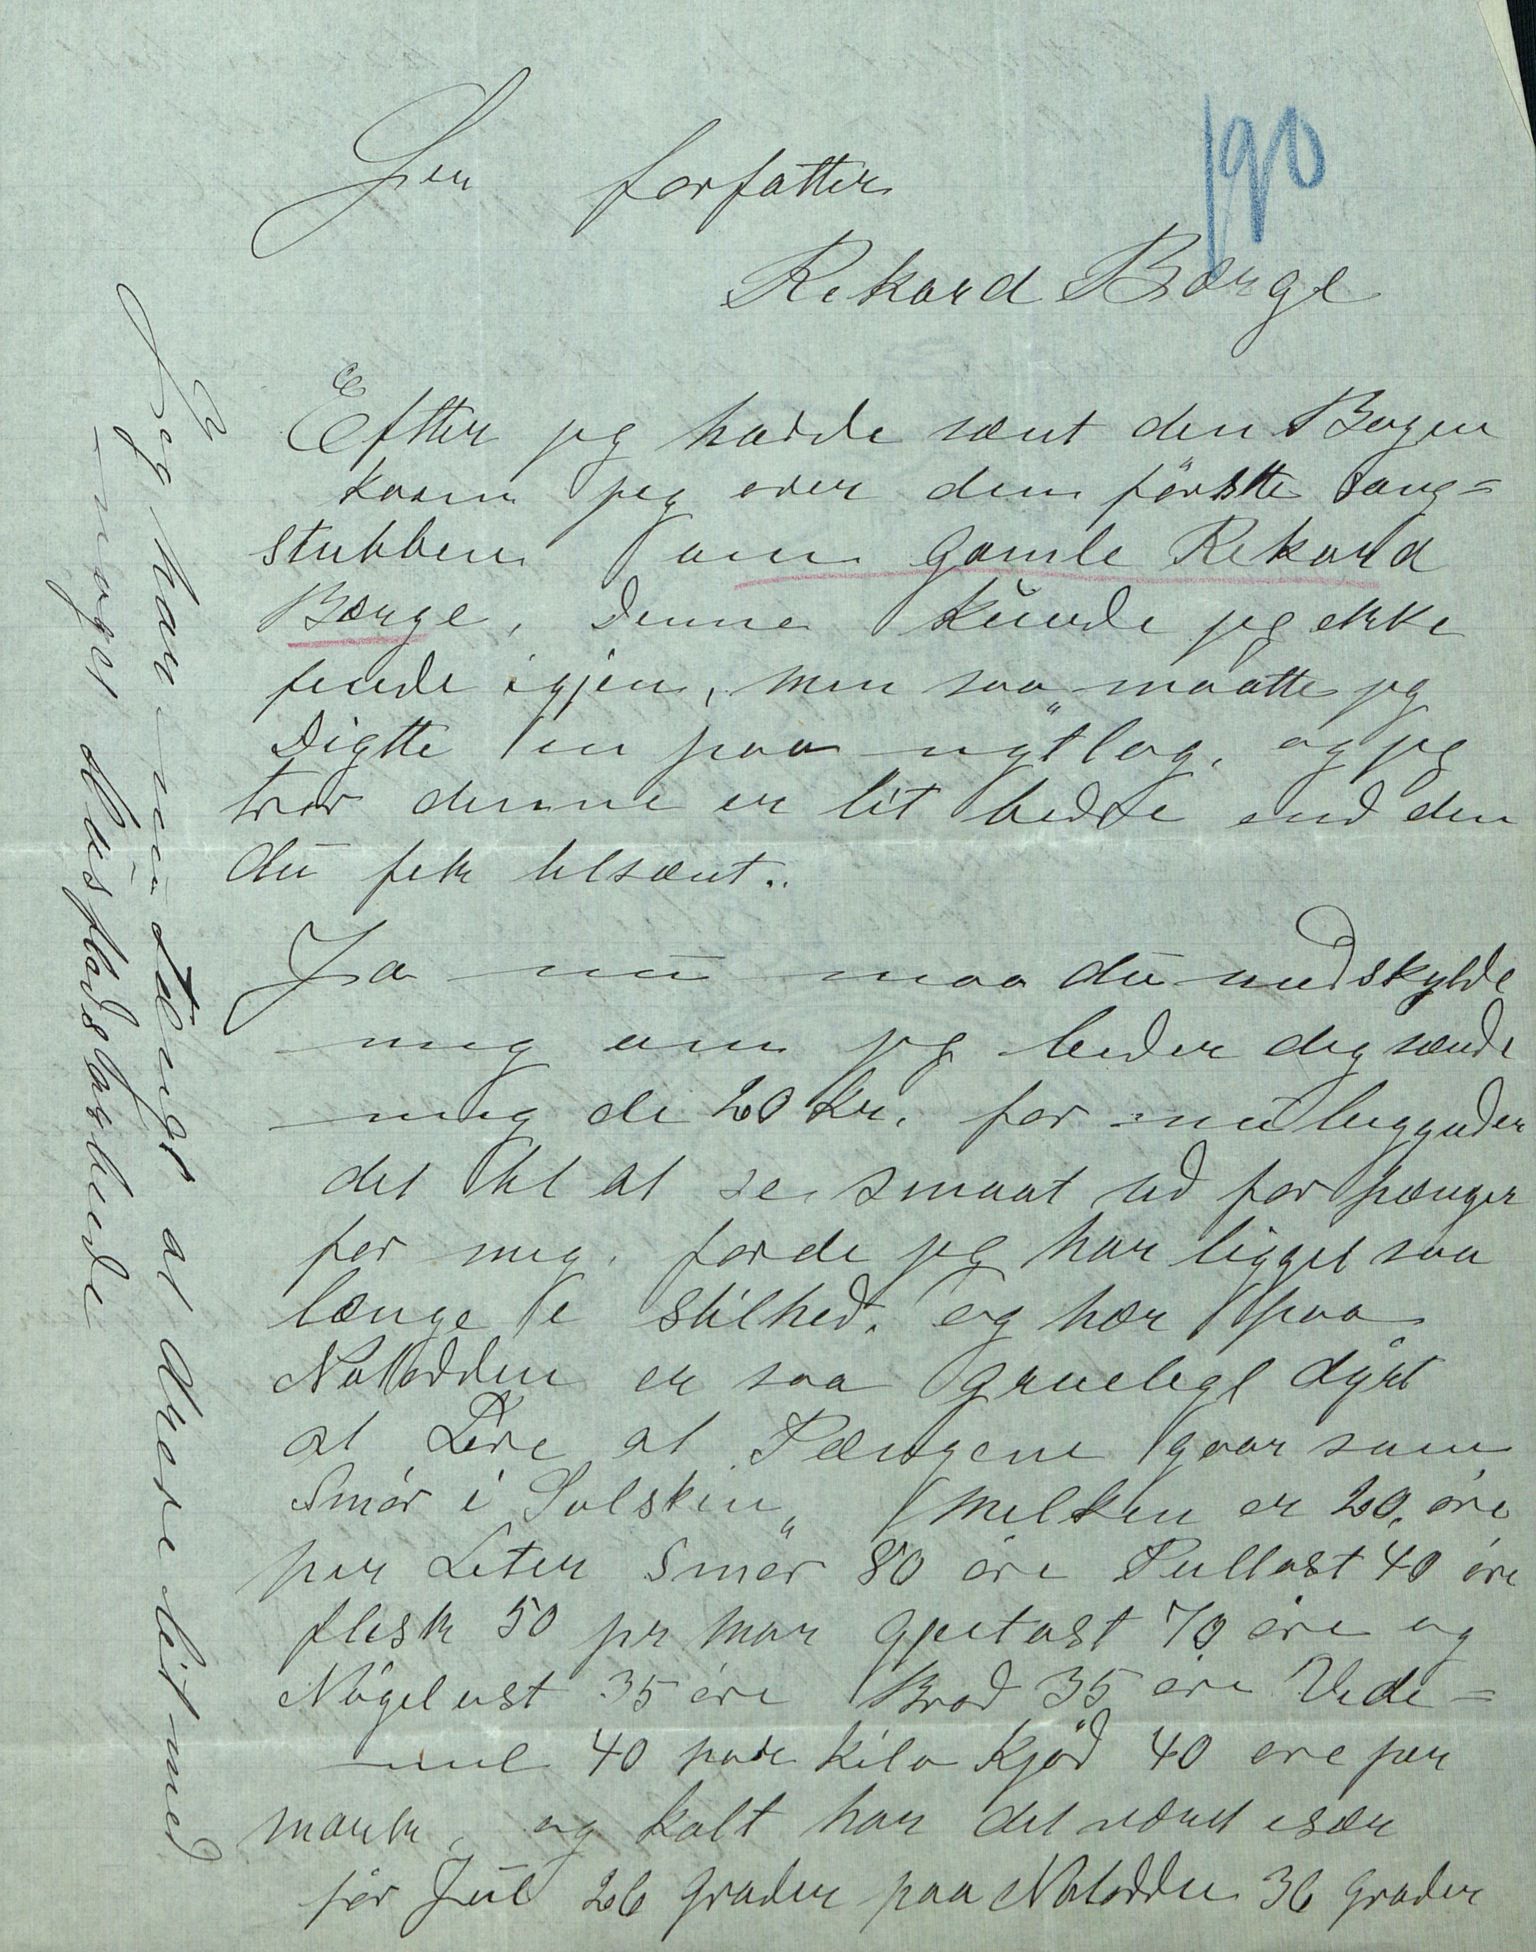 190
Herr forfatter
Rikard Bærge
Efter jeg hadde sænt den Bogen
kaam jeg over den förstte sang=
stubben om gamle Rikard
Bærge, denne kunde jeg ekke
finde igjen, men saa maatte jeg
Digtte en paa nytlag, og jeg
tror denne er lit bedre end den
dú fek telsænt..
Ja nú maa dú undskylde
mig om jeg beder dig sænde
mig de 20 kr. for nú byggnder
det til at se smaat ud for pænger
for mig. forde jeg har ligget saa
længe e stilhed. og hær paa
Notodden er saa gruelegt dyrt
at Leve at Pængene gaar som
Smör i Solskin„ Melken er 20. öre
per Leter Smör 80 öre Pultost 40 öre
flesk 50 pr mar gjetost 70 öre og
Nögelost 35 öre Bröd 35 öre Vede=
mel 40 pære kilo Kjöd 40 öre per
mark, og kalt har det været esær
för Júl 26 Grader paa Notodden 36 Grader
Jeg har nú tængt at drive lit med
noget Húsflidsarbeide